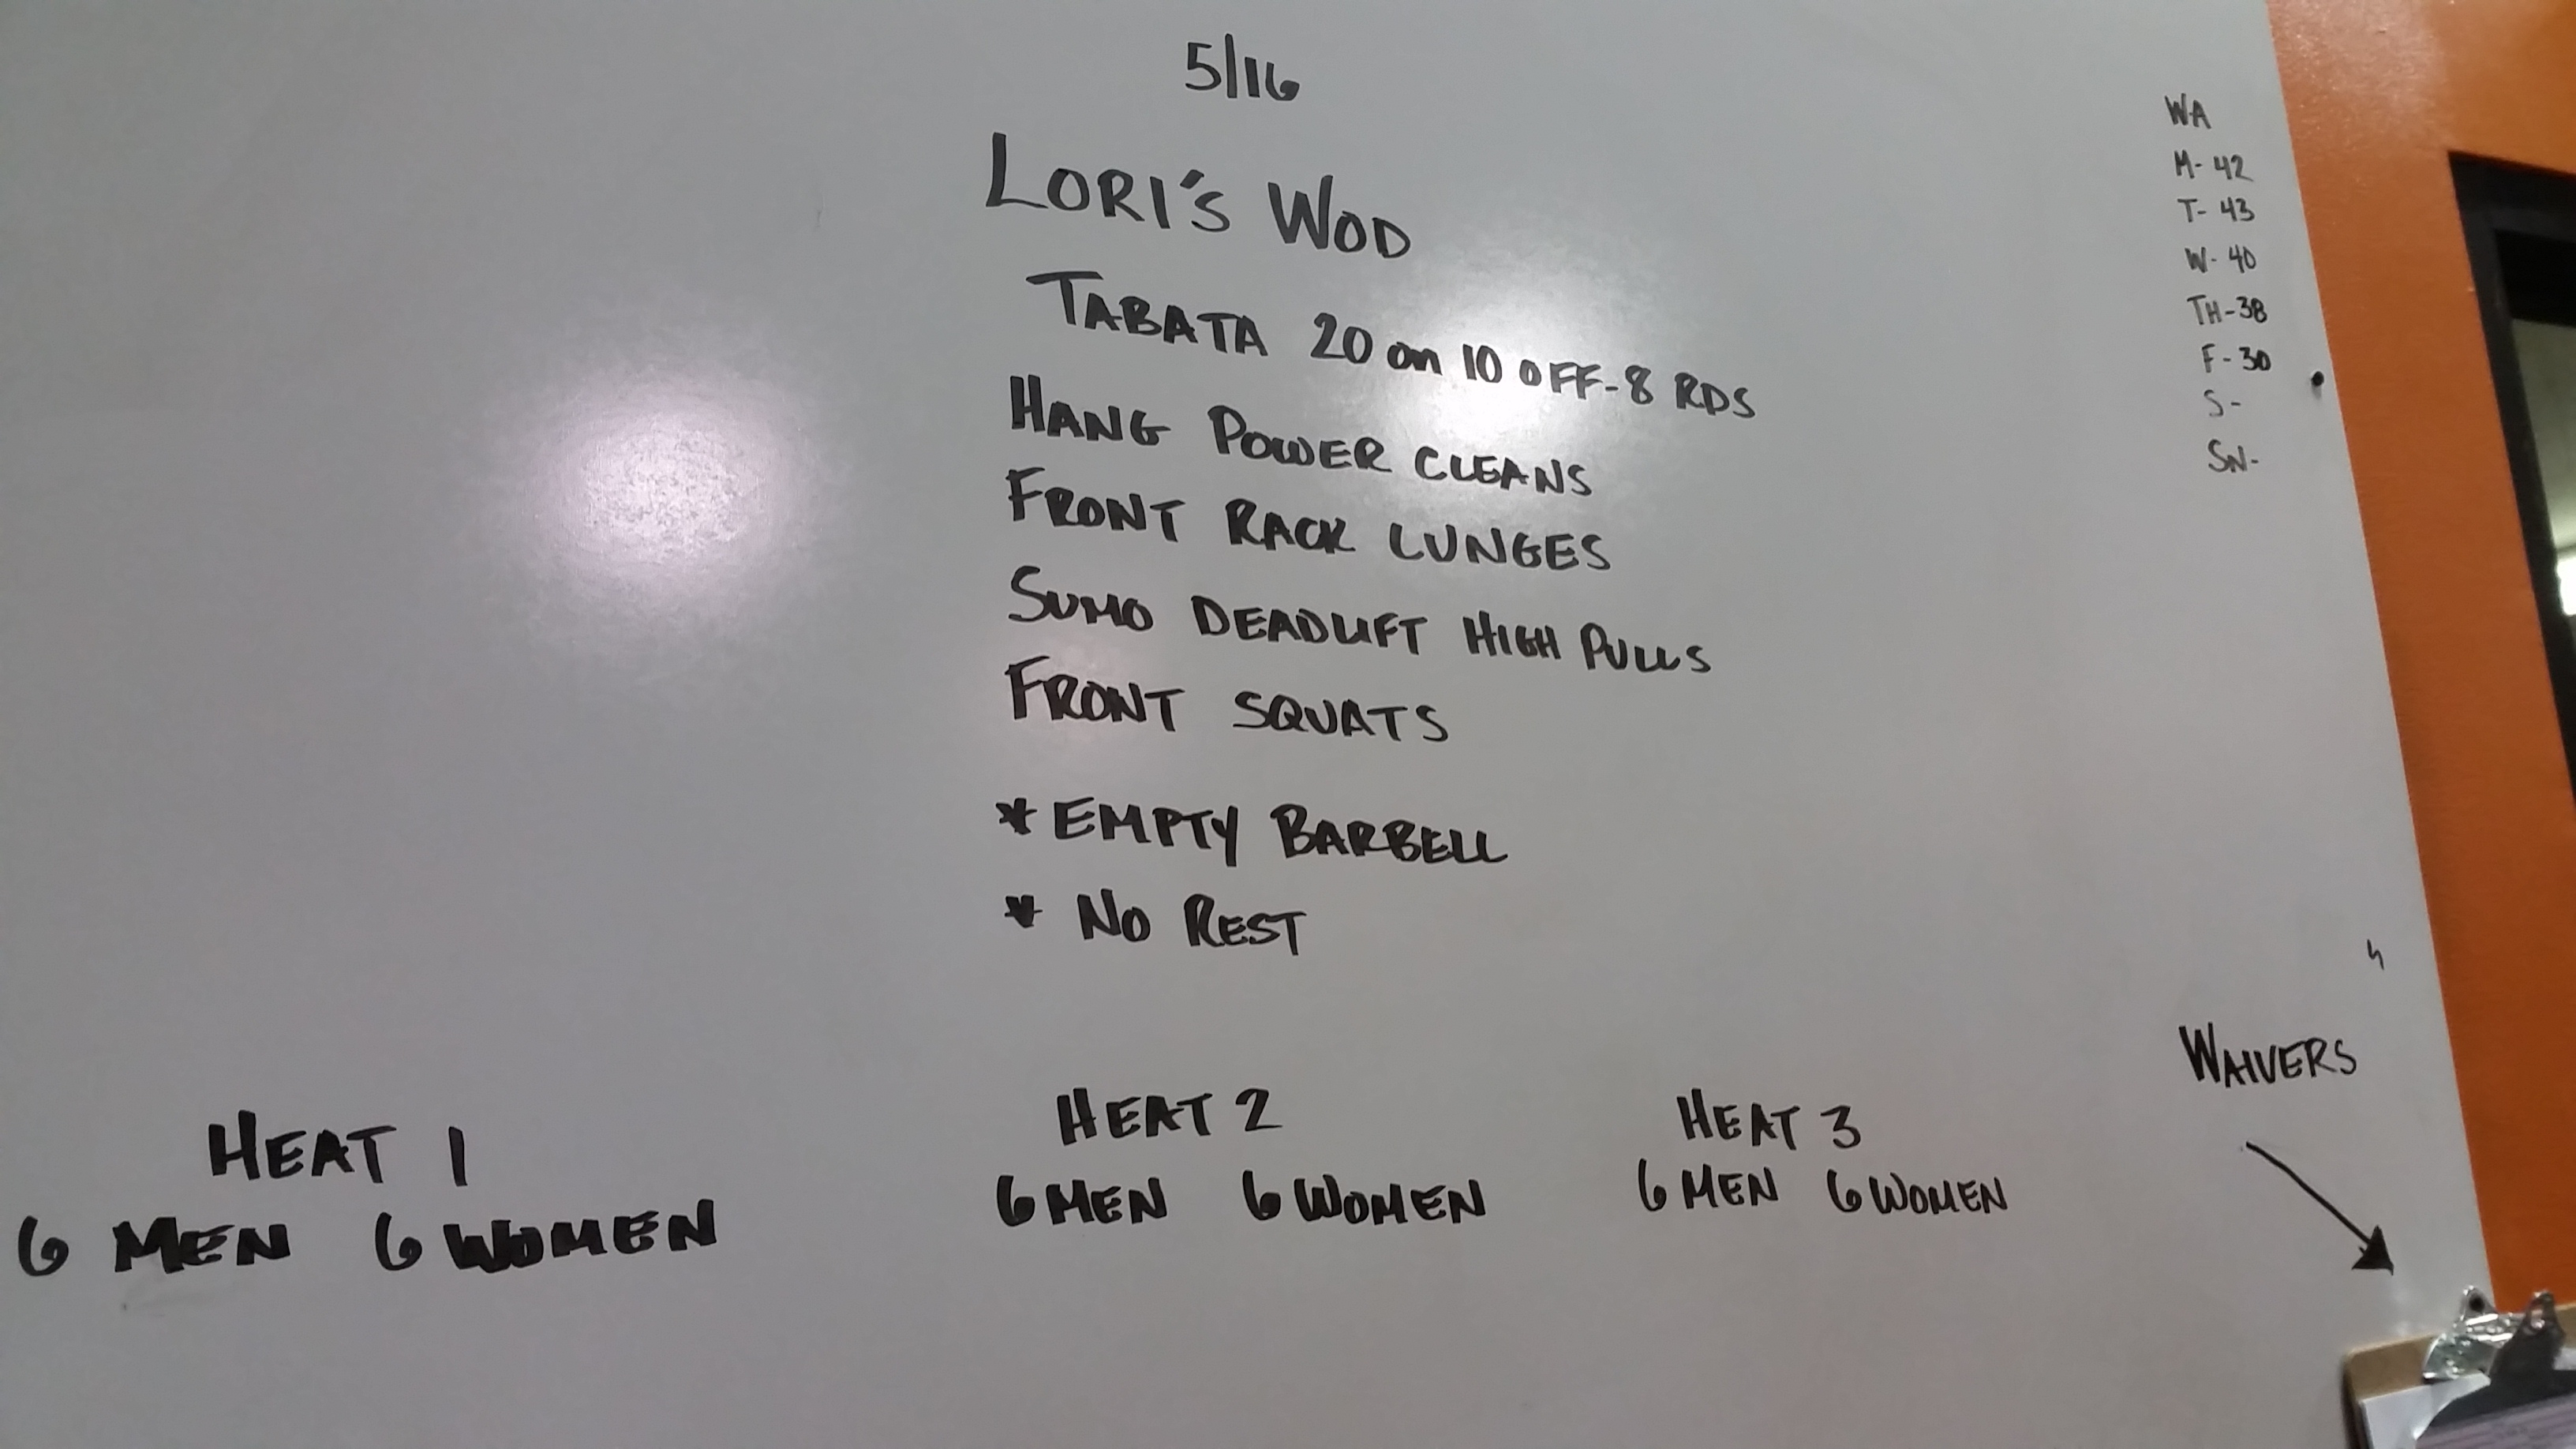 5/16
LORI'S WOD
TABATA 20 on 10 OFF-8 RDS
HANG POWER CLEANS
FRONT RACK LUNGES
SUMO DEADLIFT HIGH PULLS
FRONT SQUATS
* EMPTY BARBELL
* NO REST
HEAT 1
6 MEN 6 WOMEN
HEAT 2
6 MEN 6 WOMEN
HEAT 3
6 MEN 6 WOMEN
WA
M- 42
T- 43
W- 40
TH-38
F-30
S-
SN-
WAIVERS